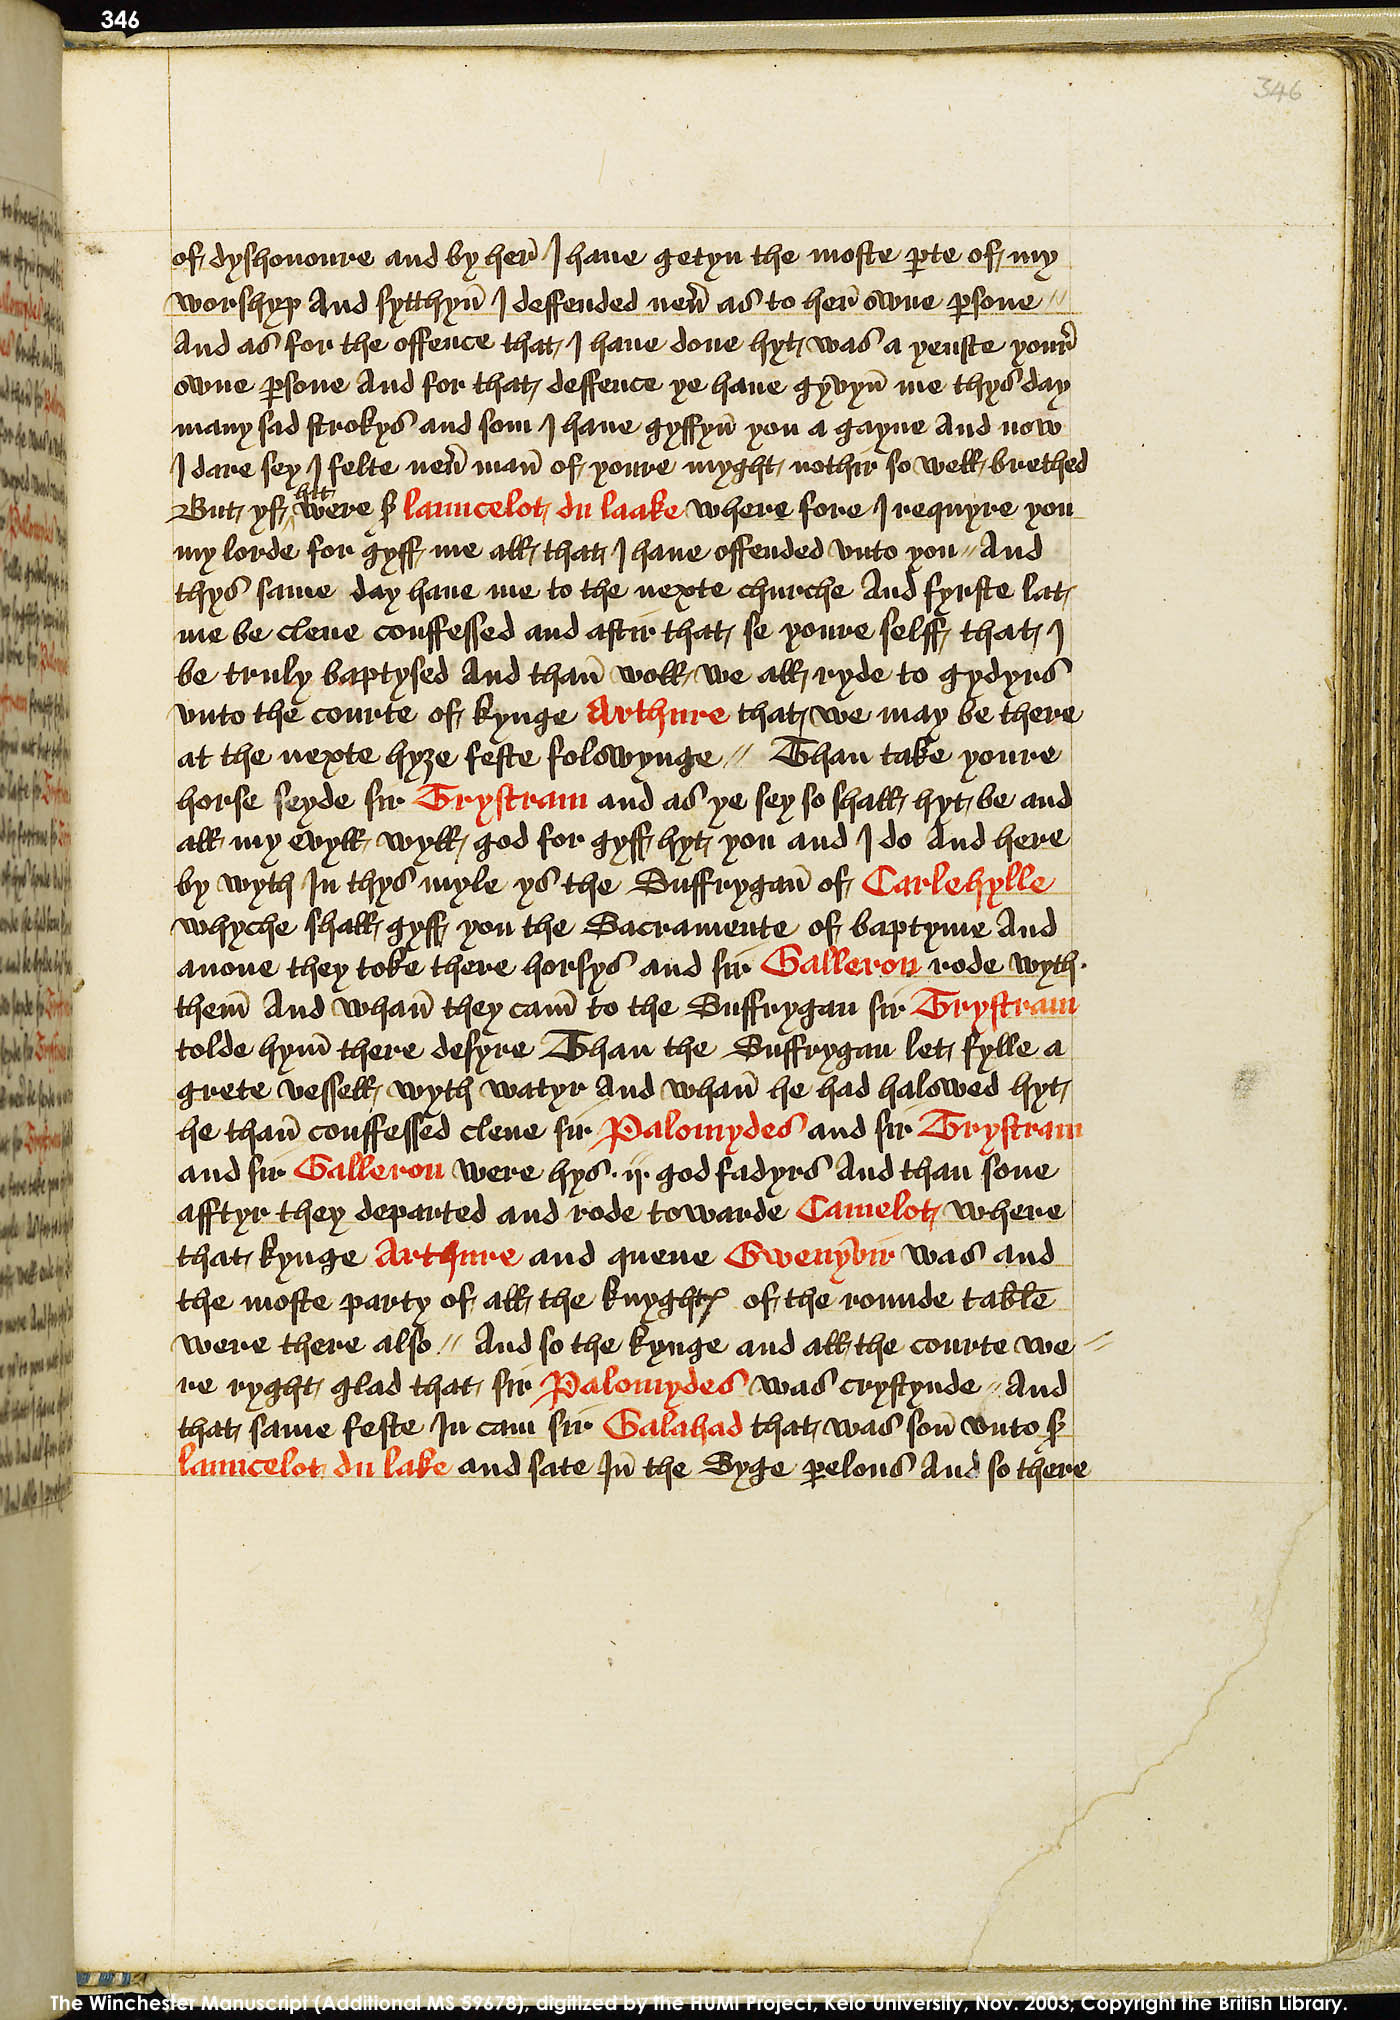 346
346
of dyshonoure and by her I haue getyn the moste ꝑte of my
worshyp And sytthyn̄ I deffended neũ as to her owne ꝑsone //
And as for the offence that I haue done hyt was a yenste your
owne ꝑsone And for that deffence ye haue gyvyn̄ me thys day
many sad strokys and som I haue gyffyn̄ you a gayne And now
I dare sey I felte neũ man̄ of youre myght nothir so well brethed
But yf hit were ẜ launcelot du laake where fore I requyre you
my lorde for gyff me all that I haue offended vnto you // And
thys same day haue me to the nexte churche And fyrste lat
me be clene conffessed and aftir that se youre selff that I
be truly baptysed And than̄ woll we all ryde to gydyrs
vnto the courte of kynge Arthure that we may be there
at the nexte hyȝe feste folowynge // Than take youre
horse seyde sir Trystram and as ye sey so shall hyt be and
all my evyll wyll god for gyff hyt you and I do And here
by wyth In thys myle ys the Suffrygan̄ of Carlehylle
whyche shall gyff you the Sacramente of baptyme And
anone they toke there horsys and sir Galleron rode wyth
them̄ And whan̄ they cam̄ to the Suffrygan sir Trystram
tolde hym̄ there desyre Than the Suffrygan let fylle a
grete vessell wyth watyr And whan̄ he had halowed hyt
he than̄ conffessed clene sir Palomydes and sir Trystram
and sir Galleron were hys · ij · god fadyrs And than sone
afftyr they departed and rode towarde Camelot where
that kynge Arthure and quene Gwenyvir was and
the moste party of all the knyghtꝭ of the rounde table
were there also // And so the kynge and all the courte we //
re ryght glad that sir Palomydes was crystynde // And
that same feste In cam sir Galahad that was son̄ vnto ẜ
launcelot du lake and sate In̄ the Syge ꝑelous And so there
The Winchester Manuscript (Additional MS 59678), digitized by the HUMI Project, Keio University, Nov. 2003; Copyright the British Library.